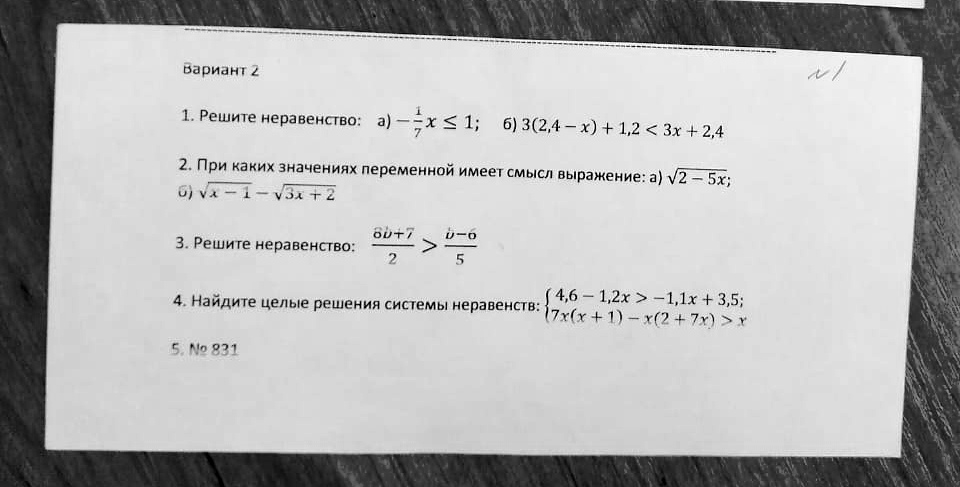 Вариант 2
№1
1. Решите неравенство: а) −1/7 x ≤ 1; б) 3(2,4 − x) + 1,2 < 3x + 2,4
2. При каких значениях переменной имеет смысл выражение: а) √(2 − 5x);
б) √(x − 1) − √(3x + 2)
3. Решите неравенство: (8b+7)/2 > (b−6)/5
4. Найдите целые решения системы неравенств: {4,6 − 1,2x > −1,1x + 3,5;
7x(x + 1) − x(2 + 7x) > x
5. № 831